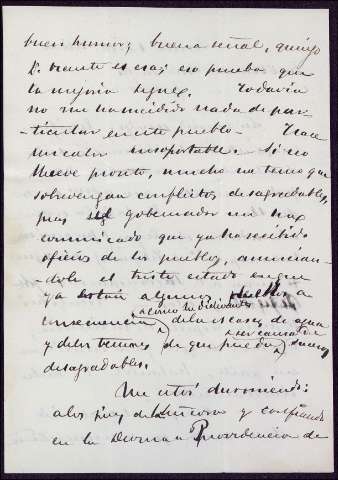 buen humor; buena señal, amigo
D. Vicente es esa; eso prueba que
la mejoría sigue. Todavía
no me ha decidido nada de par-
-ticular en este pueblo. Hace
un calor insoportable. Si no
llueve pronto, mucho me temo que
sobrevengan conflictos desagradables,
pues el gobernador me ha
comunicado que ya ha recibido
oficios de los pueblos, anuncian-
dole el triste estado en que
ya están algunos pueblos a
consecuencia de la escasez de agua
y de los temores de que pueda ser causa de sucesos
desagradables.
a los pies de la Señora y confiando
en la Divina Providencia de